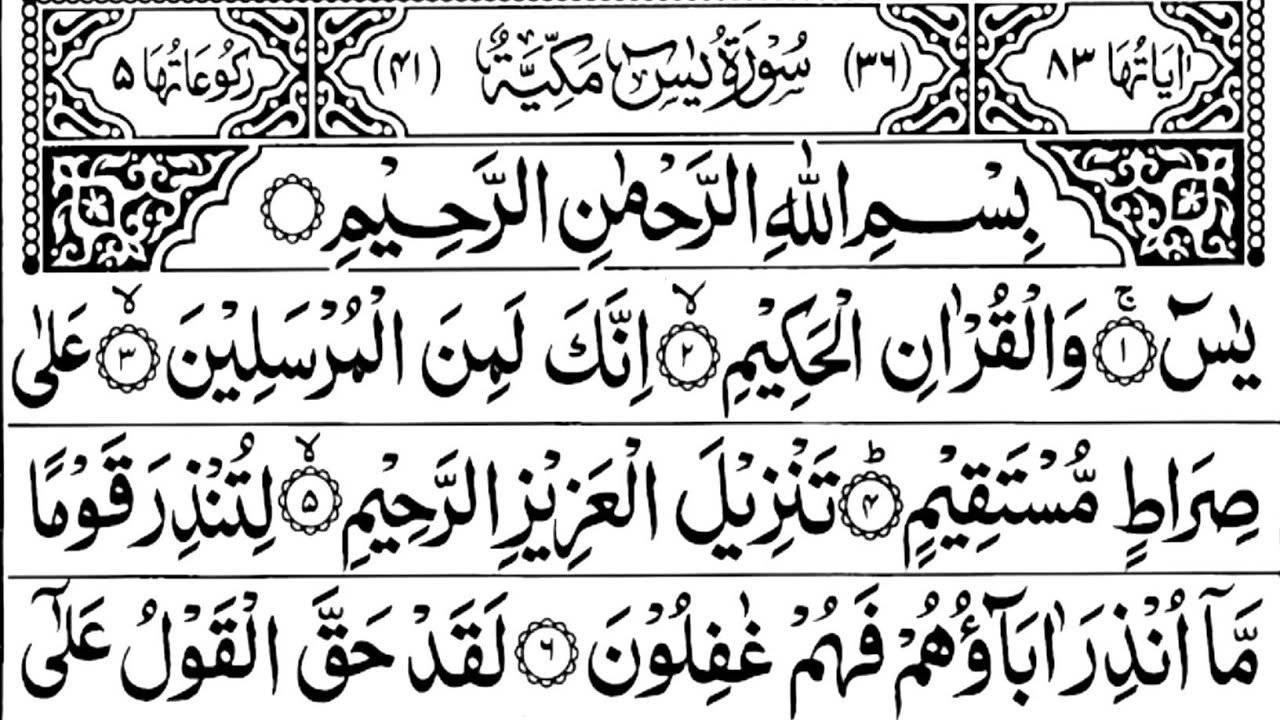 اٰيَاتُهَا ٨٣ (٣٦) سُوْرَةُ يٰسٓ مَكِّيَّةٌ (٤١) رُكُوْعَاتُهَا ۵
بِسْمِ اللّٰهِ الرَّحْمٰنِ الرَّحِيْمِ ○
يٰسٓ ۚ﴿۱﴾ وَالْقُرْاٰنِ الْحَكِيْمِ ۙ﴿۲﴾ اِنَّكَ لَمِنَ الْمُرْسَلِيْنَ ۙ﴿۳﴾ عَلٰى
صِرَاطٍ مُّسْتَقِيْمٍ ؕ﴿۴﴾ تَنْزِيْلَ الْعَزِيْزِ الرَّحِيْمِ ۙ﴿۵﴾ لِتُنْذِرَ قَوْمًا
مَّاۤ اُنْذِرَ اٰبَآؤُهُمْ فَهُمْ غٰفِلُوْنَ ﴿۶﴾ لَقَدْ حَقَّ الْقَوْلُ عَلٰۤى